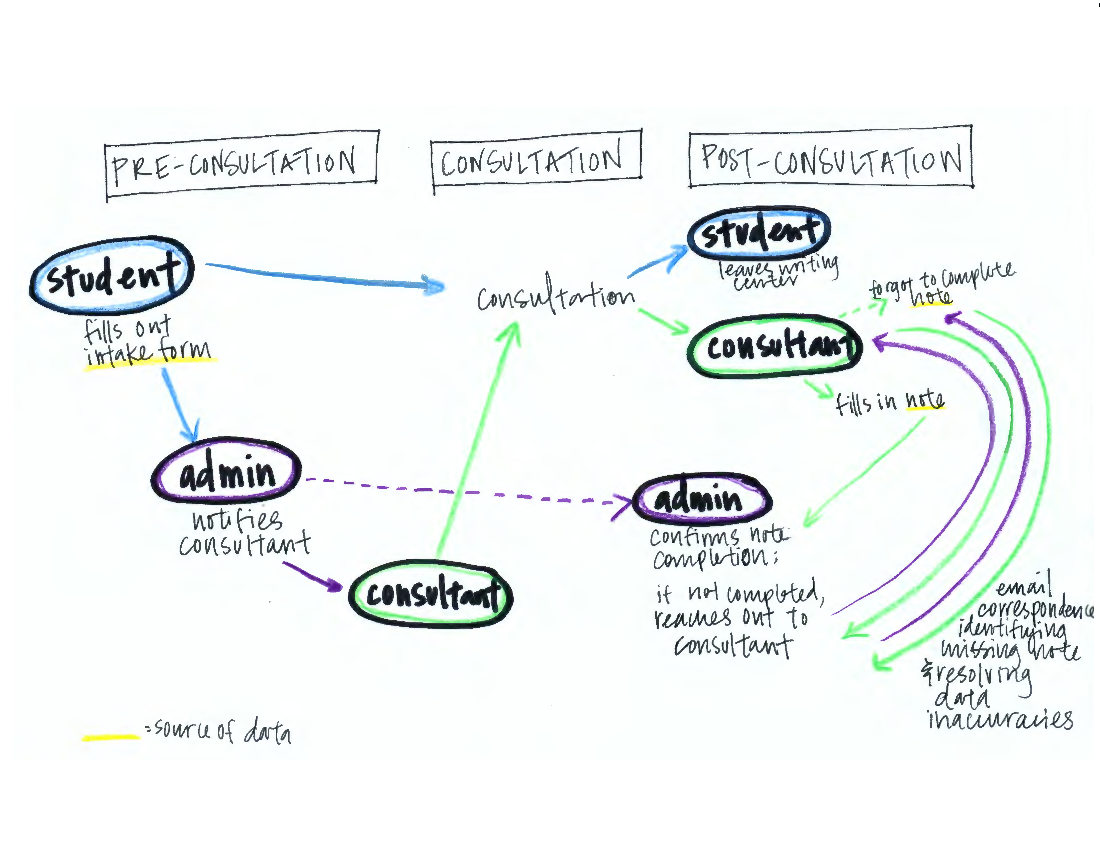 PRE-CONSULTATION
CONSULTATION
POST-CONSULTATION
student
fills out
intake form
admin
notifies
consultant
consultant
consultation
student
leaves writing
center
consultant
forgot to complete
note
fills in note
admin
confirms note
completion;
if not completed,
reaches out to
consultant
email
correspondence
identifying
missing note
& resolving
data
inaccuracies
= source of data